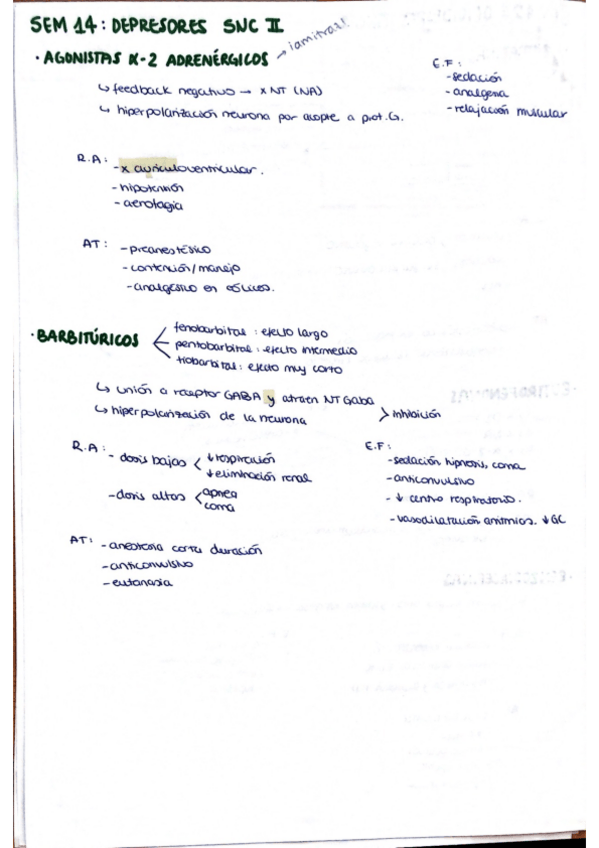 SEM 14: DEPRESORES SNC II
· AGONISTAS α-2 ADRENÉRGICOS → ¡amitraz!
↳ feedback negativo → x NT (NA)
↳ hiperpolarización neurona por acople a prot. G.
E.F:
- sedación
- analgesia
- relajación muscular
R.A: - x auriculoventricular.
- hipotensión
- aerofagia
AT: - preanestésico
- contención/manejo
- analgésico en cólicos.
· BARBITÚRICOS
fenobarbital: efecto largo
pentobarbital: efecto intermedio
tiobarbital: efecto muy corto
↳ unión a receptor GABA y atraen NT Gaba
↳ hiperpolarización de la neurona
> inhibición
R.A: - dosis bajas < ↓ respiración
↓ eliminación renal
- dosis altas < apnea
coma
E.F:
- sedación hipnosis, coma
- anticonvulsivo
- ↓ centro respiratorio.
- vasodilatación arritmias. ↓ GC
AT: - anestesia corta duración
- anticonvulsivo
- eutanasia